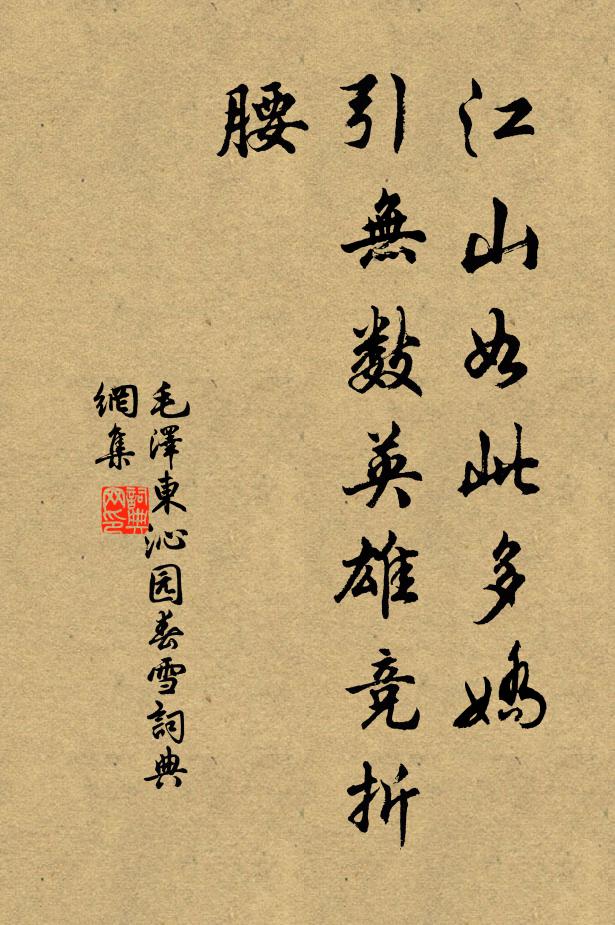 江山如此多嬌
引無數英雄竞折
腰
毛澤東沁园春雪詞典
網集
詞典
网印